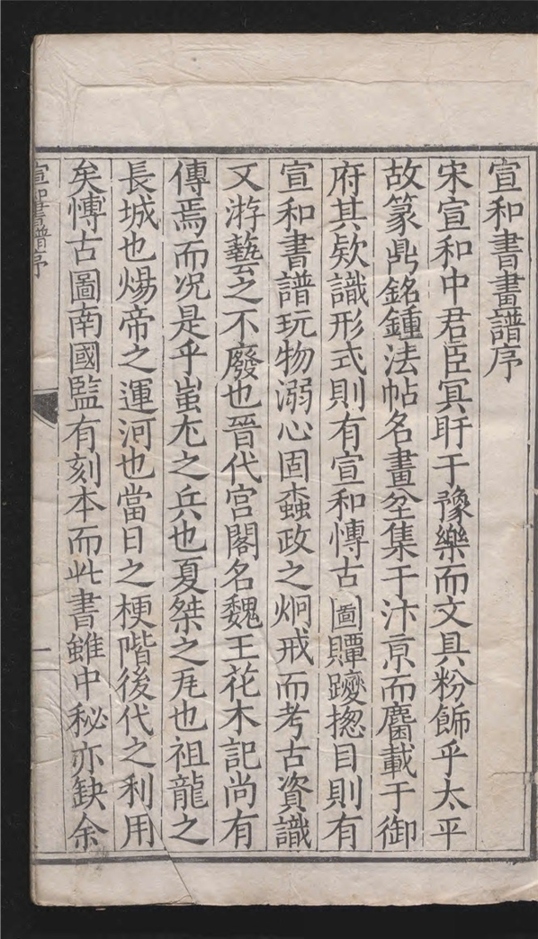 宣和書畫譜序
宋宣和中君臣冥盱于豫樂而文具粉飾乎太平
故篆鼎銘鍾法帖名畫坌集于汴亰而麕載于御
府其欵識形式則有宣和愽古圖贉躞揔目則有
宣和書譜玩物溺心固蠧政之炯戒而考古資識
又游藝之不廢也晉代宫閣名魏王花木記尚有
傳焉而况是乎蚩尤之兵也夏桀之瓦也祖龍之
長城也煬帝之運河也當日之梗階後代之利用
矣愽古圖南國監有刻本而此書雖中秘亦缺余
宣和書譜序
一